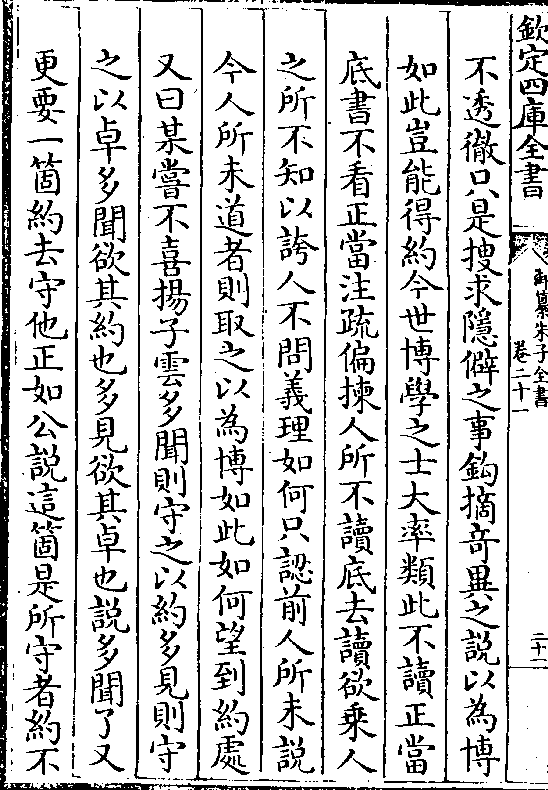 欽定四庫全書
御纂朱子全書
卷二十一
二十一
不透徹只是搜求隱僻之事鈎摘奇異之說以為博
如此豈能得約今世博學之士大率類此不讀正當
底書不看正當注疏偏揀人所不讀底去讀欲乗人
之所不知以誇人不問義理如何只認前人所未說
今人所未道者則取之以為博如此如何望到約處
又曰某嘗不喜揚子雲多聞則守之以約多見則守
之以卓多聞欲其約也多見欲其卓也說多聞了又
更要一箇約去守他正如公說這箇是所守者約不